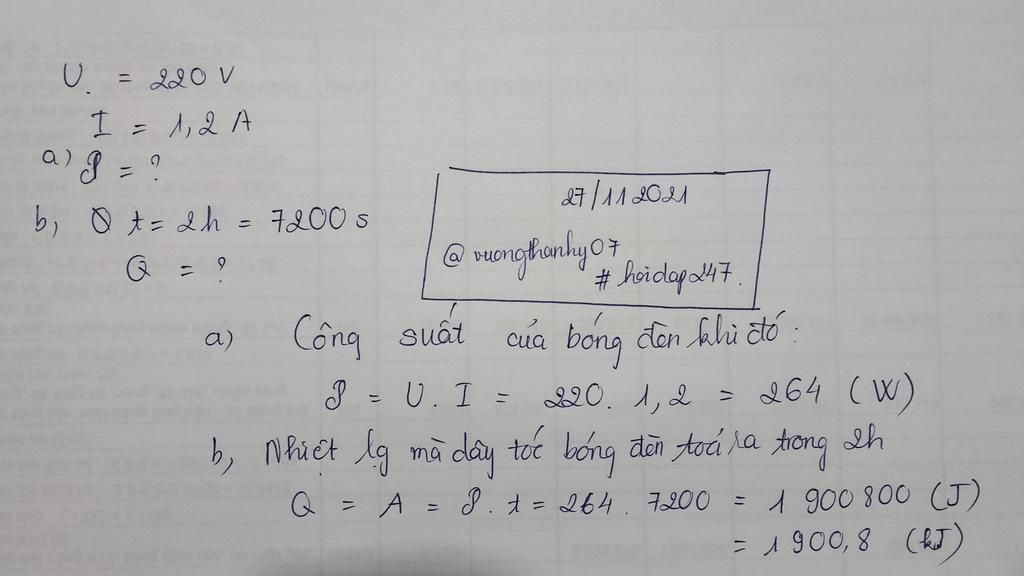 U. = 220 V
I = 1,2 A
a) P = ?
b, Q t = 2h = 7200 s
Q = ?
27/11 2021
@vuongthanhy07
# hoidap247.
a) Công suất của bóng đèn khi đó:
P = U. I = 220. 1,2 = 264 (W)
b, Nhiệt lg mà dây tóc bóng đèn toả ra trong 2h
Q = A = P. t = 264 . 7200 = 1 900 800 (J)
= 1 900,8 (kJ)